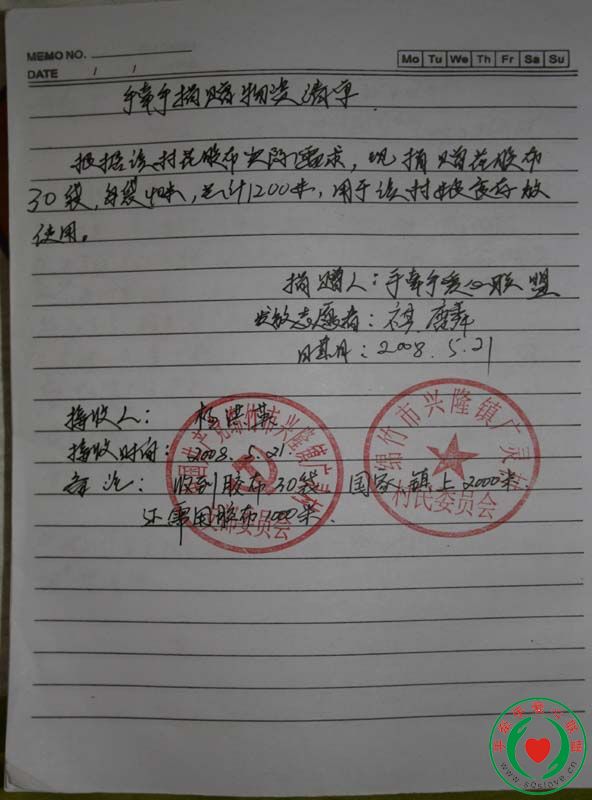 MEMO NO.
Mo Tu We Th Fr Sa Su
DATE / /
手牵手捐赠物资清单
根据该村花胶布实际需求，现捐赠花胶布
30袋，每袋40米，总计1200米，用于该村粮食存放
使用。
捐赠人：手牵手爱心联盟
发放志愿者：祺麟
日期：2008.5.21
接收人：杨洪英
接收时间：2008.5.21.
备注：收到胶布30袋 国家镇上2000米
还需用胶布1000米.
绵竹市兴隆镇广灵村
村民委员会
绵竹市兴隆镇广灵村
支部委员会
手牵手爱心联盟
www.sqslove.cn